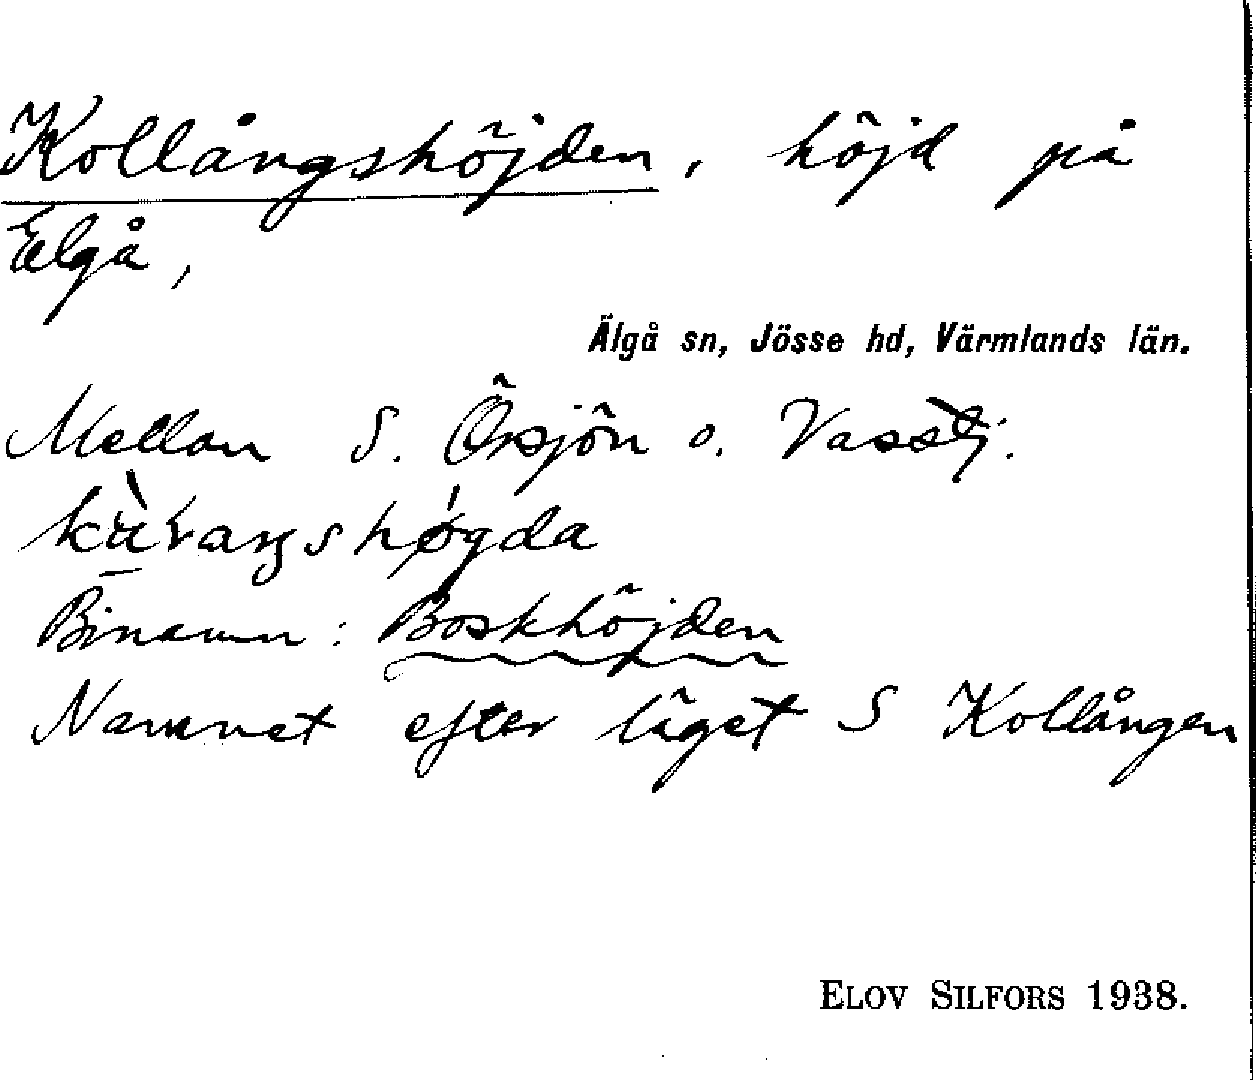 Kollångshöjden, höjd på
Elgå,
Älgå sn, Jösse hd, Värmlands län.
Mellan S. Örsjön o. Vasstj.
Binamn: Boskhöjden
Namnet efter läget S Kollången
ELOV SILFORS 1938.